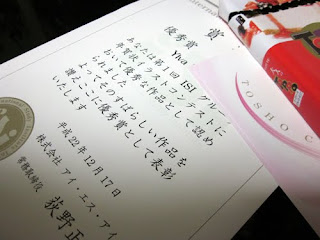 賞
優秀賞
あなたは第一回ISIグループ
年賀状イラストコンテストに
おいて優秀な作品として認め
られました
よってそのすばらしい作品を
讃えここに優秀賞として表彰
いたします
平成22年12月17日
株式会社 アイ・エス・アイ
常務取締役
荻野正
TOSHO C